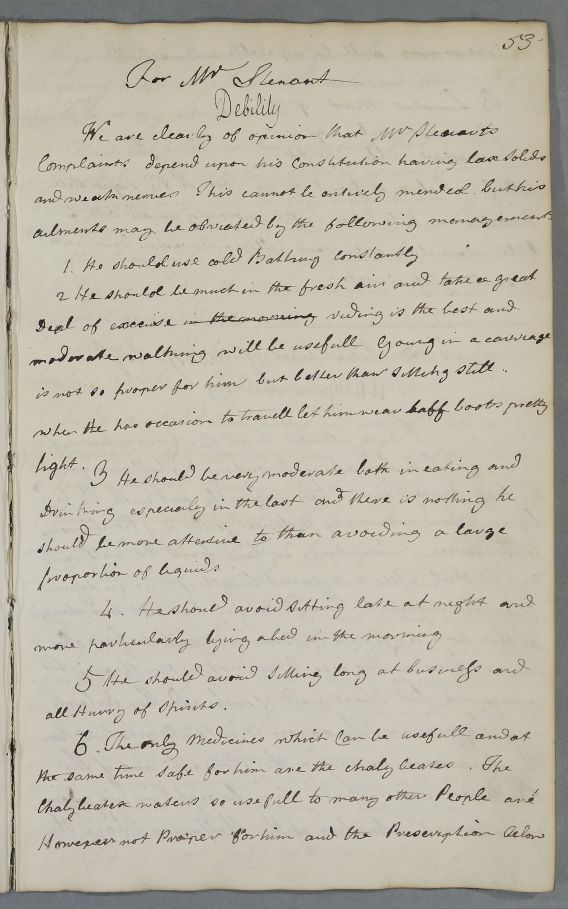 53
For Mr Steuart
Debility
We are clearly of opinion that Mr Steuarts
Complaints depend upon his Constitution having lax Solids
and weak nerves This cannot be entirely mended. but his
ailments may be obviated by the following management
1. He should use cold Bathing constantly
2 He should be much in the fresh air and take a great
Deal of exercise in the morning riding is the best and
moderate walking will be usefull Going in a carriage
is not so proper for him but better than sitting still.
when He has occasion to travell let him wear baff boots pretty
tight.
3 He should be very moderate both in eating and
Drinking especially in the last and there is nothing he
should be more attensive to than avoiding a large
proportion of liquids
4. He should avoid sitting late at night and
more particularly lying abed in the morning
5 He should avoid sitting long at business and
all Hurry of Spirits.
6. The only Medicines which Can be usefull and at
the same time safe for him are the chalybeates. The
Chalybeate waters so usefull to many other People are
However not Proper for him and the Prescription below